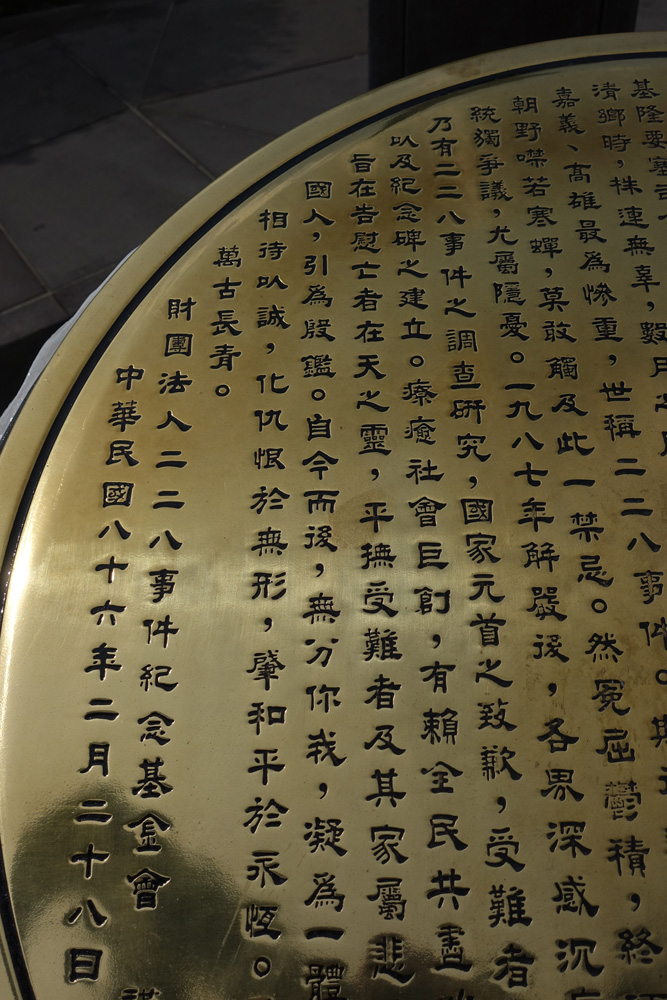 基隆要塞
清鄉時，株連無辜，數月之
嘉義、高雄最為慘重，世稱二二八事件。
朝野噤若寒蟬，莫敢觸及此一禁忌。然冤屈鬱積，終
統獨爭議，尤屬隱憂。一九八七年解嚴後，各界深感沉
乃有二二八事件之調查研究，國家元首之致歉，受難者
以及紀念碑之建立。療癒社會巨創，有賴全民共盡
旨在告慰亡者在天之靈，平撫受難者及其家屬悲
國人，引為殷鑑。自今而後，無分你我，凝為一體
相待以誠，化仇恨於無形，肇和平於永恆。
萬古長青。
財團法人二二八事件紀念基金會
中華民國八十六年二月二十八日